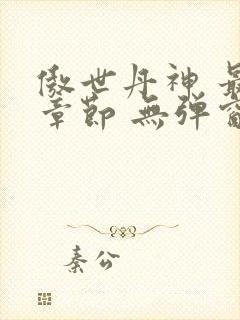 傲世丹神 最
章節 無弹窗
秦公